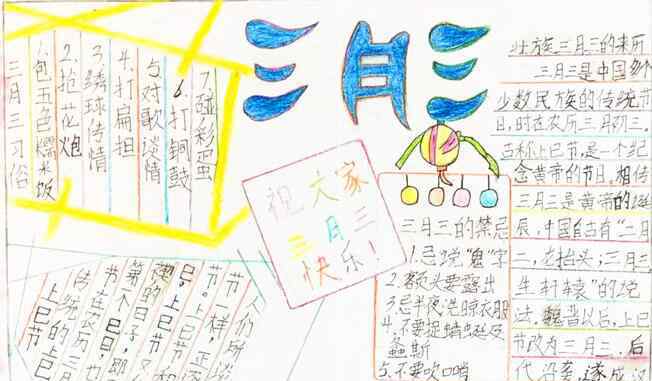 三月三
三月三习俗
1.包五色糯米饭
2.抢花炮
3.绣球传情
4.打扁担
5.对歌谈情
6.打铜鼓
7.碰彩蛋
祝大家
三月三
快乐!
壮族三月三的来历
三月三是中国多个
少数民族的传统节
日,时在农历三月初三。
古称上巳节,是一个纪
念黄帝的节日,相传
三月三是黄帝的诞
辰,中国自古有“二月
二,龙抬头;三月三,
生轩辕”的说
法。魏晋以后,上巳
节改为三月三,后
代沿袭,遂成汉
三月三的禁忌
1.忌说“鬼”字
2.额头要露出
3.忌半夜洗晾衣服
4.不要捉蜻蜓及
螽斯
5.不要吹口哨
人们所
节一样,正
日。上巳节
的日子,又
第一个巳日,即
传在农历三
传统的上巳
上巳节